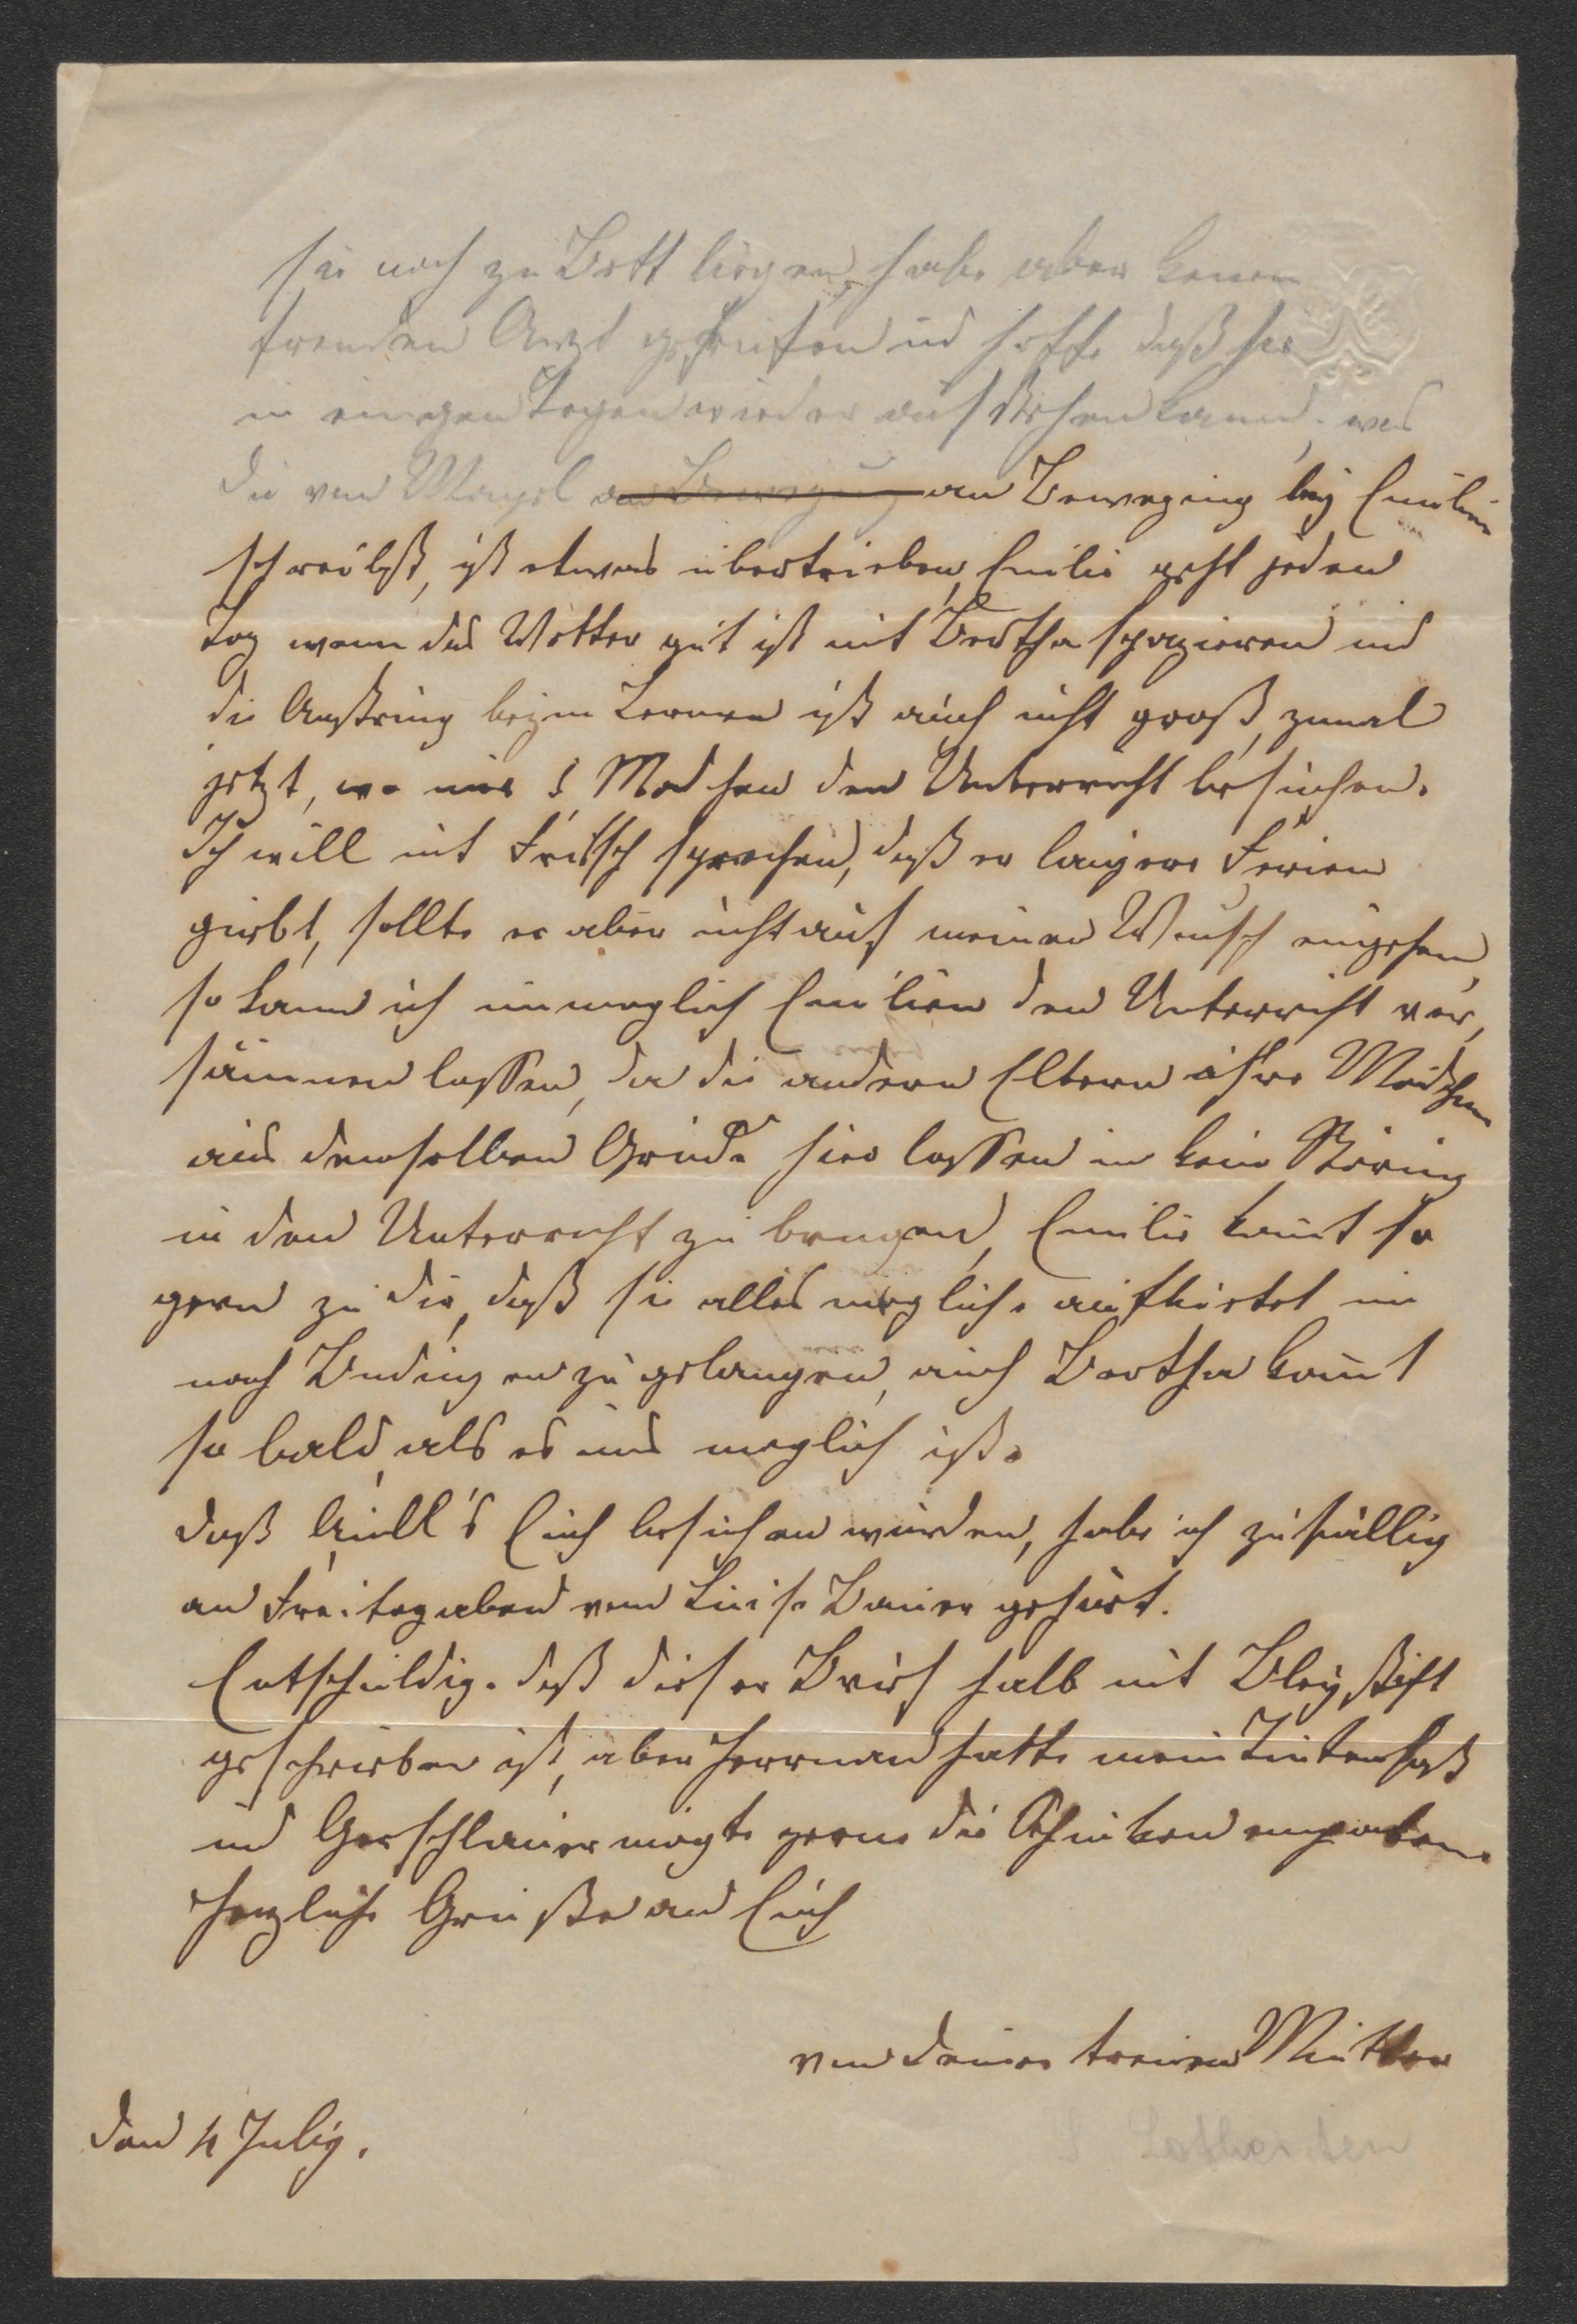 sie noch zu Bett liegen, habe aber keinen
fremden Arzt gerufen und hoffe daß sie
in einigen Tagen wieder aufstehen kann, was
Du von Mangel an Bewegung an Bewegung bey Emilien
schreibst, ist etwas übertrieben, Emilie geht jeden
Tag wenn das Wetter gut ist mit Bertha spazieren und
die Anstrung beym Lernen ist auch nicht groß, zumal
jetzt, wo nur 8 Madchen den Unterricht besuchen.
Ich will mit Fritsch sprechen, daß er langere Ferien
giebt, sollte er aber nicht auf meinen Wunsch eingehen
so kann ich unmoglich Emilien den Unterricht ver,
säumen lassen, da die andern Eltern ihre Mädchen
aus demselben Grunde hier lassen um kein Störung
in den Unterricht zu bringen, Emilie komt so
gern zu Dir, daß sie alles mögliche aufbietet um
nach Budingen zu gelangen, auch Bertha komt
so bald, als es uns moglich ist.
daß Euch besuchen würden, habe ich zufällig
an Freitagabend von Luise Bauer gehört.
Entschuldige daß dieser Brief halb mit Bleystift
geschrieben ist, aber Herrman hatte mein Tintenfaß
und mögte gerne die Schinken
Herzliche Grüße an Euch
von Deiner treuen Mutter
den 4 July.